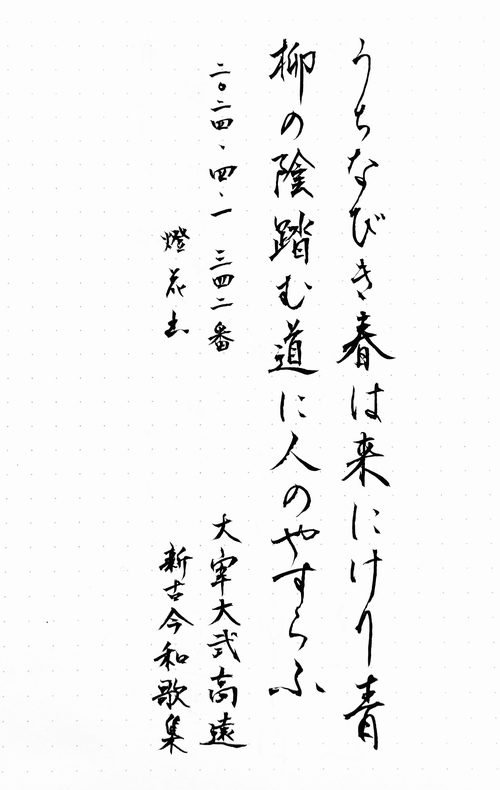 うちなびき春は来にけり青
柳の陰踏む道に人のやすらふ
二〇二四、四、一 三四二番
大宰大弐高遠
燈花书
新古今和歌集